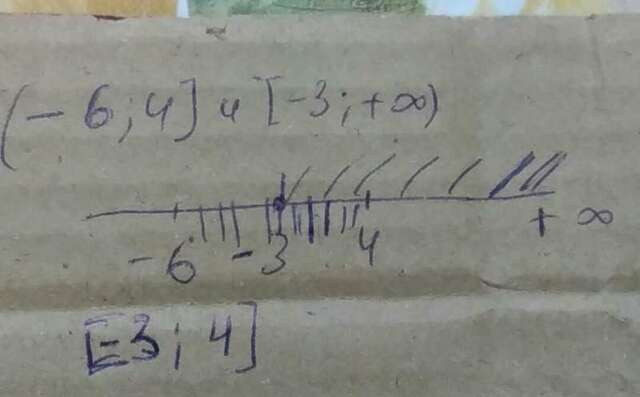 (-6;4] и [-3;+∞)
-6 -3 4 + ∞
[-3; 4]